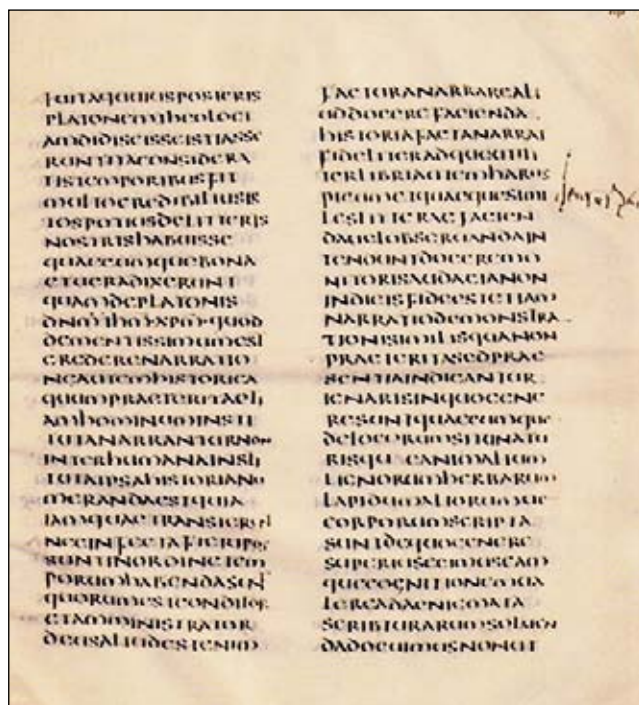 FUITACUIUSPOSTERIS
PLATONEMTHEOLOGI
AMDIDISCISSEISTIASSE
RUNTITACONSIDERA
TISTEMPORIBUSFIT
MULTOCREDIBILIUSIS
TOSPOTIUSDELITTERIS
NOSTRISHABUISSE
QUAECUMQUEBONA
ETUERADIXERUNT
QUAMDEPLATONIS
DNMIHMXPMQUOD
DEMENTISSIMUMEST
CREDERENARRATIO
NEAUTEMHISTORICA
QUUMPRAETERITAETI
AMHOMINUMINSTI
TUTANARRANTURNON
INTERHUMANAINSTI
TUTAIPSAHISTORIANU
MERANDAESTQUIA
IAMQUAETRANSIERUNT
NECINFECTAFIERIPOS
SUNTINORDINETEM
PORUMHABENDASUNT
QUORUMESTCONDITOR
ETAMMINISTRATOR
DEUSALIUDESTENIM
FACTURANARRAREALI
UDDOCEREFACIENDA
HISTORIAFACTANARRAT
FIDELITERADQUEUTILI
TERLIBRIAUTEMHARUS
PICUMETQUAEQUESIMI
LESLITTERAEFACIEN
DAUELOBSERUANDAIN
TENDUNTDOCEREMO
NITORISAUDACIANON
INDICISFIDEESTETIAM
NARRATIODEMONSTRA
TIONISIMILISQUANON
PRAETERITASEDPRAE
SENTIAINDICANTUR
IGNARISINQUOGENE
RESUNTQUAECUMQUE
DELOCORUMSITUNATU
RISQUEANIMALIUM
LIGNORUMHERBARUM
LAPIDUMALIORUMUE
CORPORUMSCRIPTA
SUNTDEQUOGENERE
SUPERIUSEGIMUSEAM
QUECOGNITIONEMUA
LEREADAENIGMATA
SCRIBTURARUMSOLUEN
DADOCUIMUSNONUT